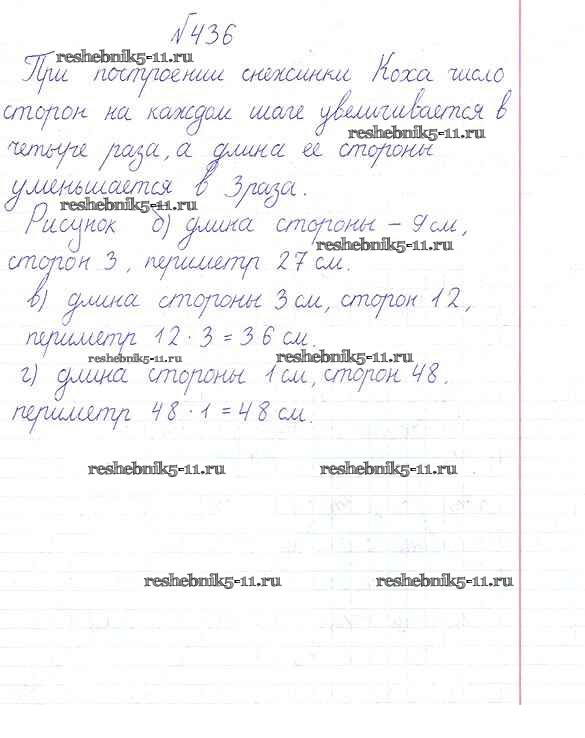 №436
reshebnik5-11.ru
При построении снежинки Коха число
сторон на каждом шаге увеличивается в
reshebnik5-11.ru
четыре раза, а длина ее стороны
уменьшается в 3 раза.
reshebnik5-11.ru
Рисунок б) длина стороны – 9 см,
reshebnik5-11.ru
сторон 3, периметр 27 см.
в) длина стороны 3 см, сторон 12,
периметр 12 · 3 = 36 см.
reshebnik5-11.ru reshebnik5-11.ru
г) длина стороны 1 см, сторон 48.
периметр 48 · 1 = 48 см.
reshebnik5-11.ru reshebnik5-11.ru
reshebnik5-11.ru reshebnik5-11.ru